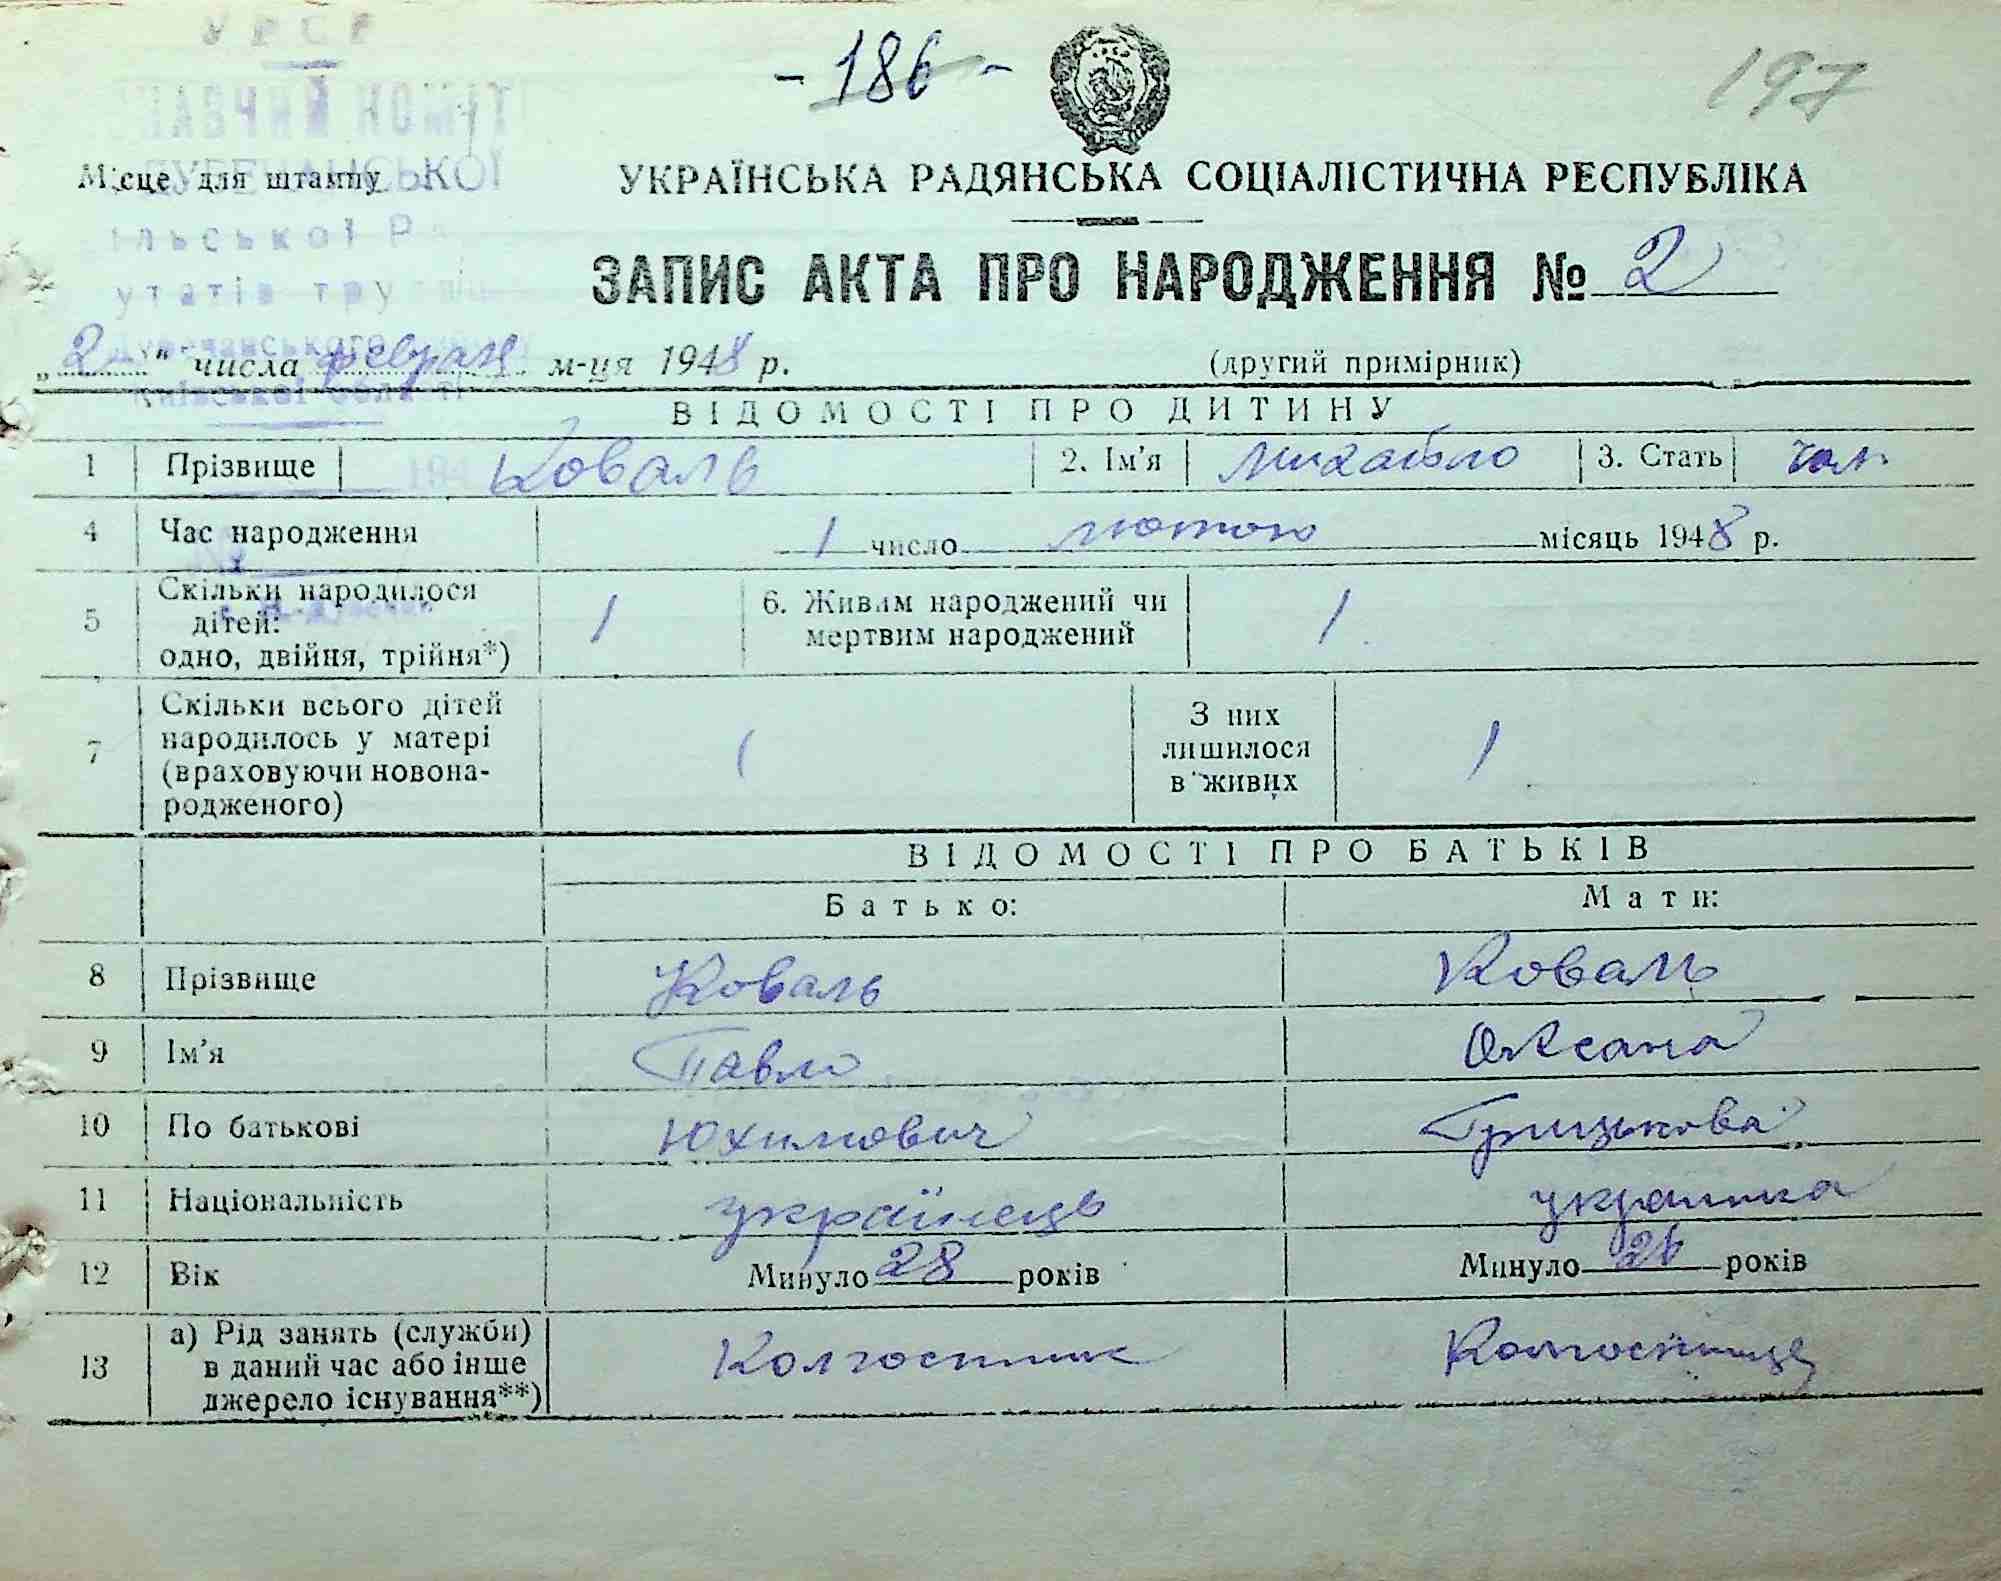 УРСР
- 186 -
197
НАВЧИЙ КОМІТ
Місце для штампу
УКРАЇНСЬКА РАДЯНСЬКА СОЦІАЛІСТИЧНА РЕСПУБЛІКА
ільської Р
ЗАПИС АКТА ПРО НАРОДЖЕННЯ № 2
утатів тру
„2" числа февраля м-ця 1948 р.
(другий примірник)
Київської області
ВІДОМОСТІ ПРО ДИТИНУ
1 Прізвище Коваль 2. Ім'я Михайло 3. Стать чол.
4 Час народження 1 число лютого місяць 1948 р.
5 Скільки народилося дітей: одно, двійня, трійня*) 1 6. Живим народжений чи мертвим народжений 1
7 Скільки всього дітей народилось у матері (враховуючи новонародженого) 1 З них лишилося в живих 1
ВІДОМОСТІ ПРО БАТЬКІВ
Батько: Мати:
8 Прізвище Коваль Коваль
9 Ім'я Павло Оксана
10 По батькові Юхимович Грицькова
11 Національність українець українка
12 Вік Минуло 28 років Минуло 26 років
13 а) Рід занять (служби) в даний час або інше джерело існування**) Колгоспник Колгоспниця